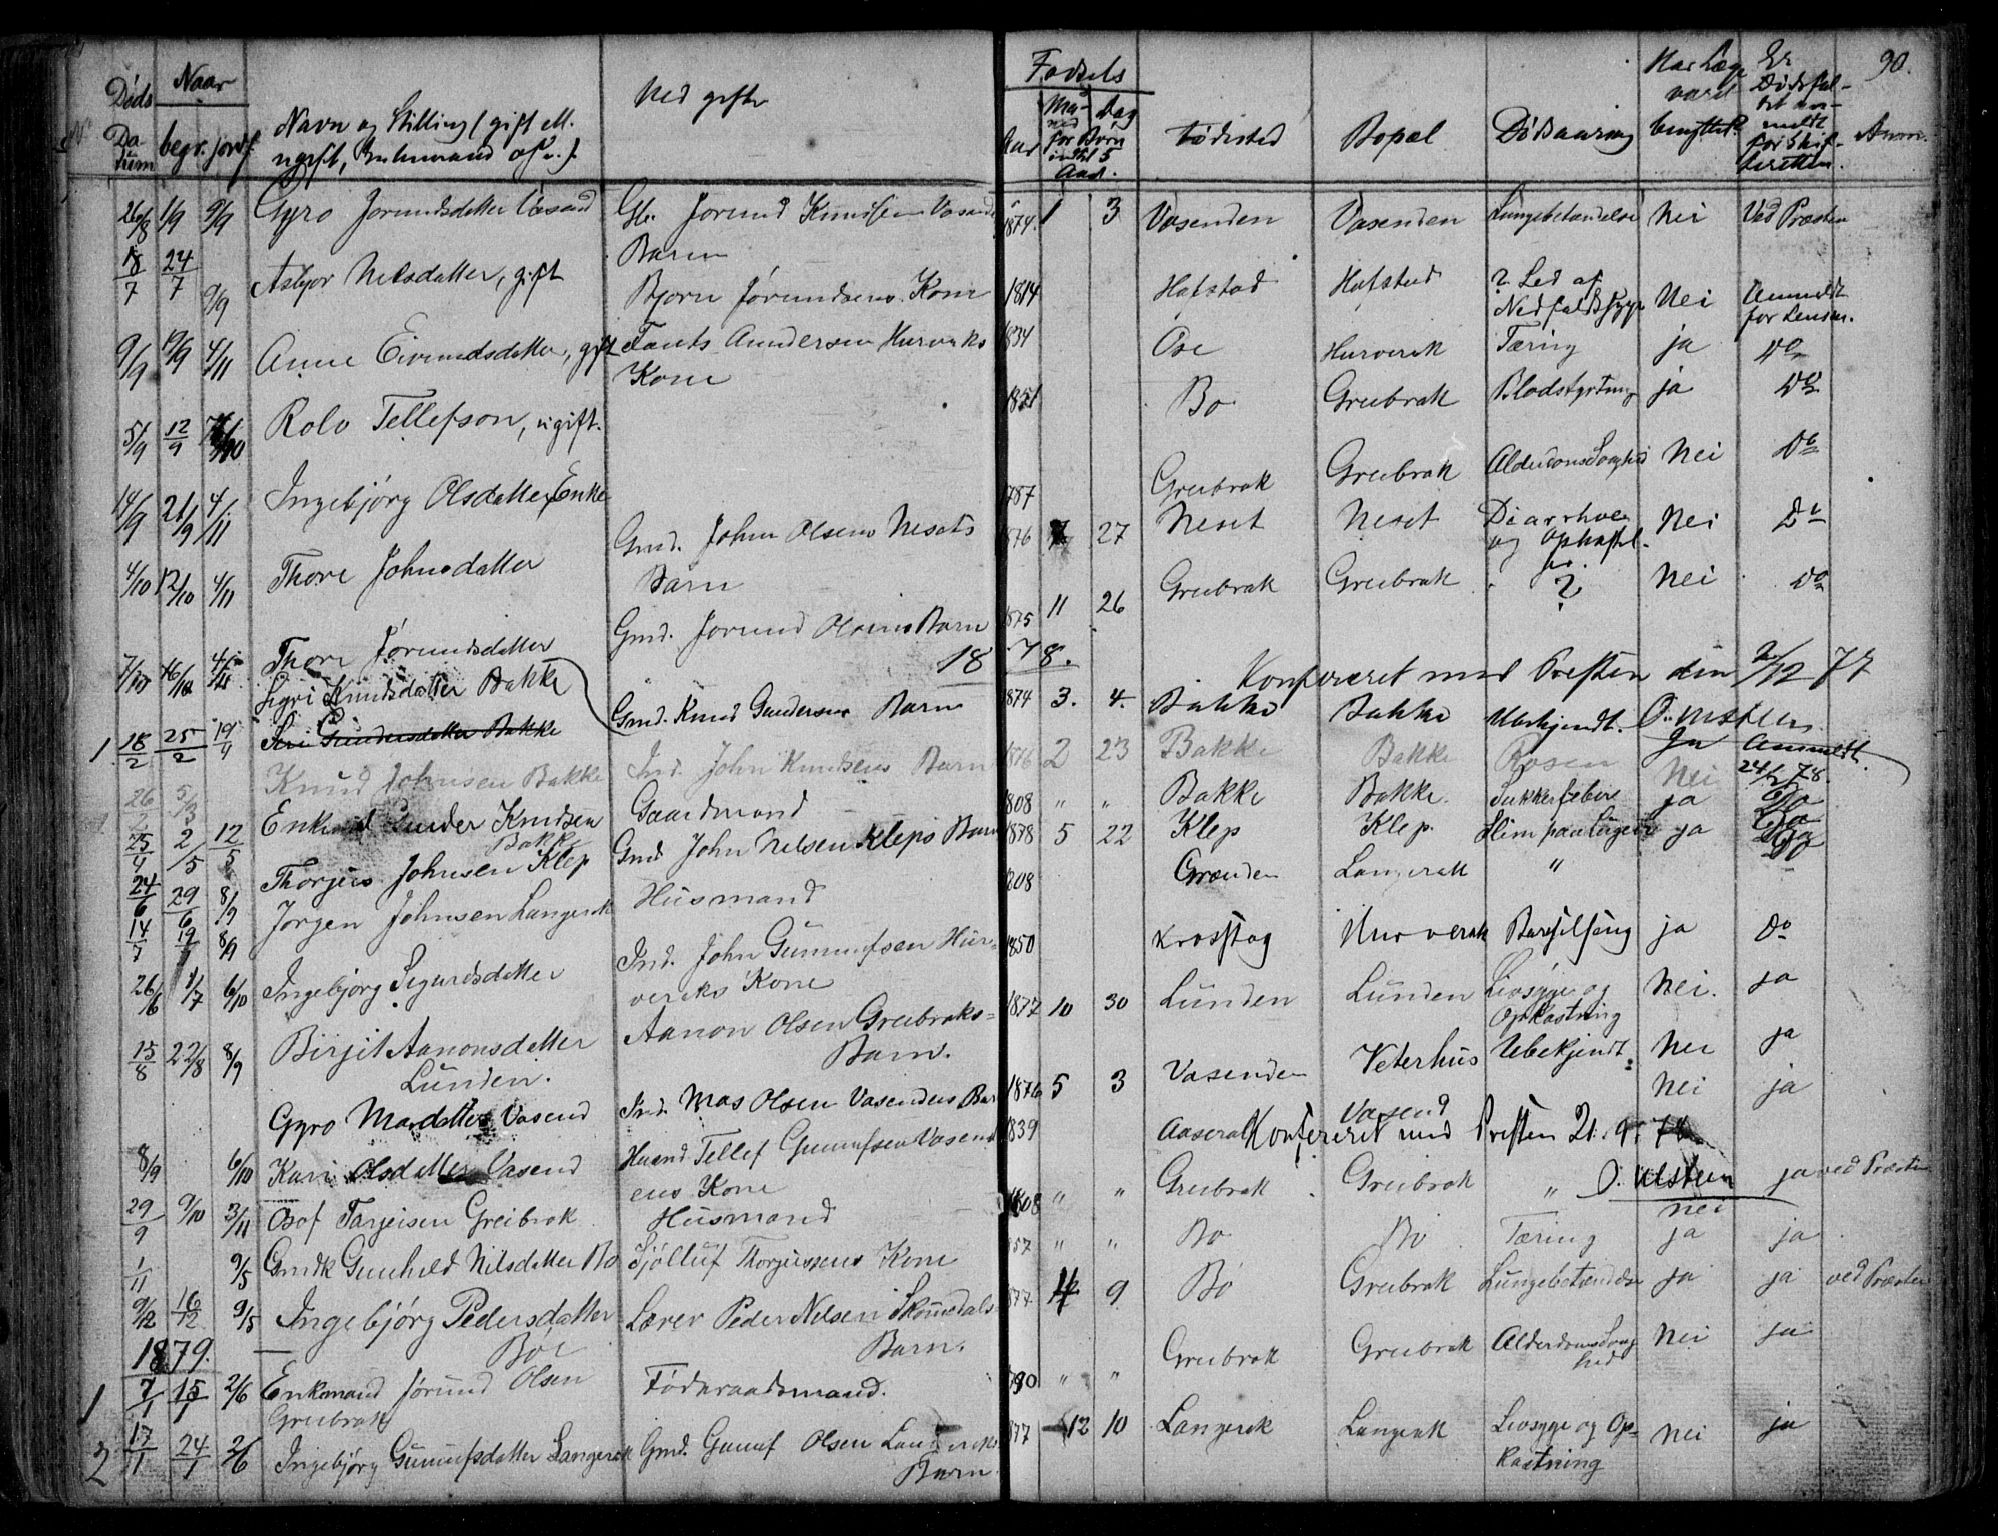 90.
Døds Datum
Naar
begr. jordf.
Navn og Stilling (gift ell. ugift, Enkemand osv.)
Ved gifte
Fødsels
Aar
Maaned Dag
for Børn indtil 5 Aar.
Fødested
Bopæl
Dødsaarsag
Har Læge været benyttet?
Er Dødsfaldet anmeldt for Skifteretten.
Anm.
26/8 1/9 9/9 Gyro Jorundsdatter Vasend Gb. Jorund Knudsen Vasend Barn 1874 1 3 Vasenden Vasenden Lungebetændelse Nei Ved Præsten
18/7 24/7 9/9 Asbjor Nilsdatter, gift Bjorn Jørundsens Kone 1814 Hofstad Hofstad ? Led af Nedfaldssyge Nei Anmeldt for Lensm.
9/9 19/9 4/11 Anne Eivindsdatter, gift Tønts Andersen Hurveraks Kone 1834 Ose Hurverak Tæring ja Do
5/9 12/9 Rolv Tellefson, ugift. Bo Greibrok Blodstyrtning ja Do
14/9 21/9 4/11 Ingebjørg Olsdatter, Enke 1787 Greibrok Greibrok Alderdomssvaghed Nei Do
4/10 12/10 4/11 Thore Johnsdatter Gmd. John Olsens Nesets Barn 1876 7 27 Neset Neset Diarrhoe og Ophastel. Nei Do
7/10 16/10 4/11 Thore Jørundsdatter Gmd. Jorund Olsens Barn 1875 11 26 Greibrok Greibrok ? Nei Do
1878.
Konfereret med Presten den 2/12 77
O. Ulstein
1 18/2 25/2 19/4 Sigri Knudsdatter Bakke Gmd. Knud Gundersens Barn 1874 3. 4. Bakke Bakke Ubekjendt. Ja Anmeldt 24/2 78.
Siri Gundersdatter Bakke
26/2 5/3 Knud Johnsen Bakke Ind. John Knudsens Barn 1876 2 23 Bakke Bakke Rosen Nei
25/4 2/5 12/5 Enkmd Gunder Knudsen Bakke Gaardmand 1808 " " Bakke Bakke. Sukkerfeber ja Do
24/6 29/6 8/9 Thorjus Johnsen Klep Gmd John Nilsen Kleps Barn 1878 5 22 Klep Klep. Slim paa Lugerne ja Do
14/7 19/7 8/9 Jørgen Johnsen Langerak Husmand 1808 Grønden Langerak "
26/6 1/7 6/10 Ingebjørg Sigurdsdatter Ind. John Gunnufsen Hurveraks Kone 1850 Krosstog Hurverak Barselseng ja Do
15/8 22/8 8/9 Birjit Aanonsdatter Lunden. Aanon Olsen Greibroks Barn. 1877 10 30 Lunden Lunden Livsyge og Opkastning Nei. ja
Gyro Masdatter Vasend Ind. Mas Olsen Vasendens Barn 1876 5 3 Vasenden Veterhus Ubekjendt. Nei ja
8/9 6/10 Kari Olsdatter Vasend Huand Tellef Gunnufsen Vasendens Kone 1839 Aaseral Vasend Nei ja
Konfereret med Presten 21.9.78
O. Ulstein
29/9 9/10 3/11 Osof Tarjeisen Greibrok Husmand 1808 " " Greibrok Greibrok " nei ja ved Præsten
1/11 9/5 Gmdk Gunhild Nilsdatter Bo Sjølluf Thorjussens Kone 1857 " " Bo Bo Tæring ja ja
9/12 16/12 9/5 Ingebjørg Pedersdatter Bøe Lærer Peder Nilsen Skomedals Barn. 1877 9 Bø Greibrok Lungebetændelse ja ja ved Præsten
1879.
1 7/1 15/1 2/6 Enkmand Jørund Olsen Greibrok Føderaadsmand. " " Greibrok Greibrok Alderdomssvaghed Nei ja
2 17/1 24/1 2/6 Ingebjørg Gunnufsdatter Langerak Gmd. Gunuf Olsen Langeraks Barn. 1877 12 10 Langerak Langerak Livsyge og Opkastning Nei ja